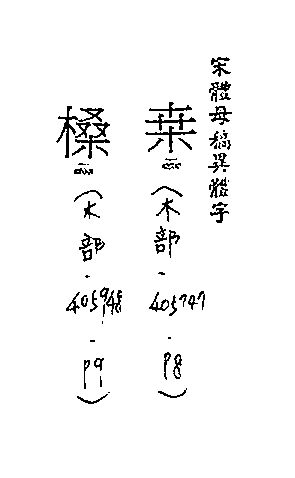 宋體母稿異體字
桒（木部·405747·P8）
槡（木部·405948·P9）